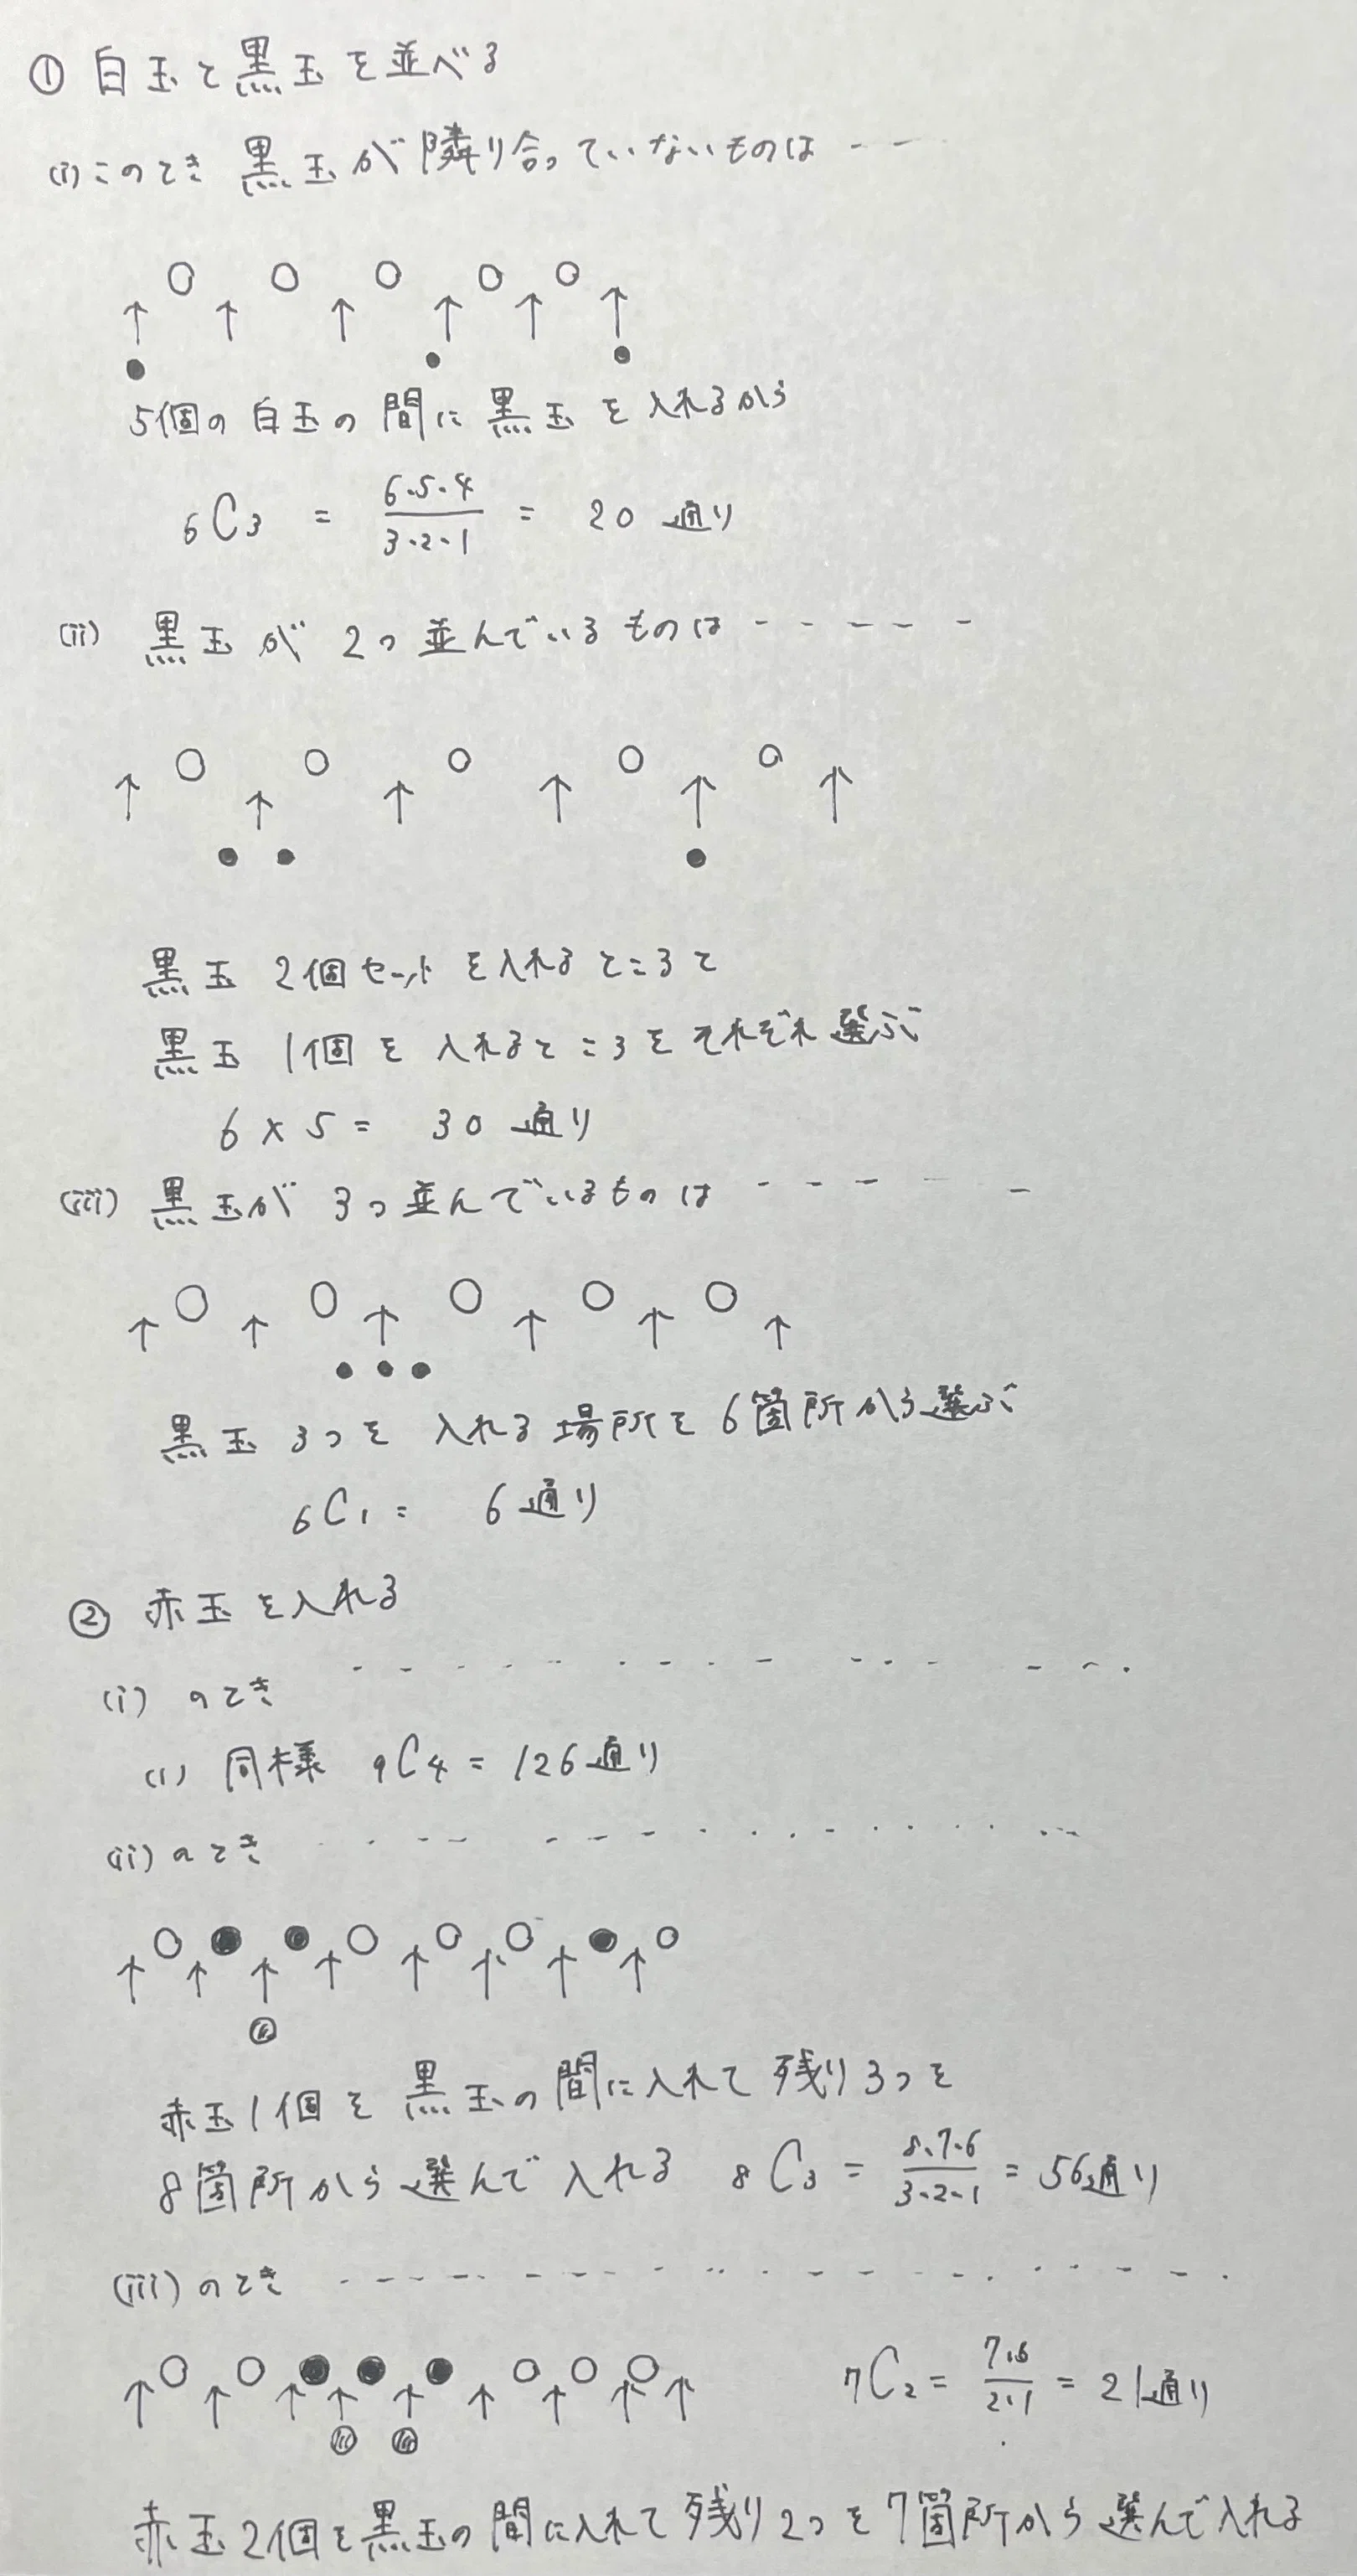 ① 白玉と黒玉を並べる
(i) このとき 黒玉が隣り合っていないものは
5個の白玉の間に黒玉を入れるから
₆C₃ = 6・5・4/3・2・1 = 20 通り
(ii) 黒玉が 2つ並んでいるものは
黒玉 2個セットを入れるところと
黒玉 1個を入れるところをそれぞれ選ぶ
6 × 5 = 30 通り
(iii) 黒玉が 3つ並んでいるものは
黒玉 3つを入れる場所を6箇所から選ぶ
₆C₁ = 6通り
② 赤玉を入れる
(i) のとき
(1) 同様 ₉C₄ = 126通り
(ii) のとき
赤玉1個を黒玉の間に入れて残り3つを
8箇所から選んで入れる ₈C₃ = 8・7・6/3・2・1 = 56通り
(iii) のとき
₇C₂ = 7・6/2・1 = 21通り
赤玉2個を黒玉の間に入れて残り2つを7箇所から選んで入れる